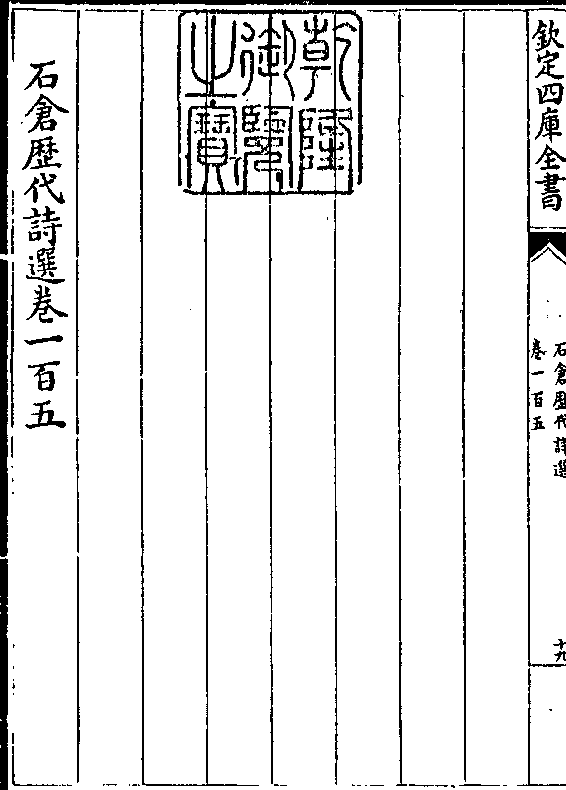 欽定四庫全書
石倉歷代詩選
卷一百五
十九
乾隆
御覽
之寶
石倉歴代詩選卷一百五